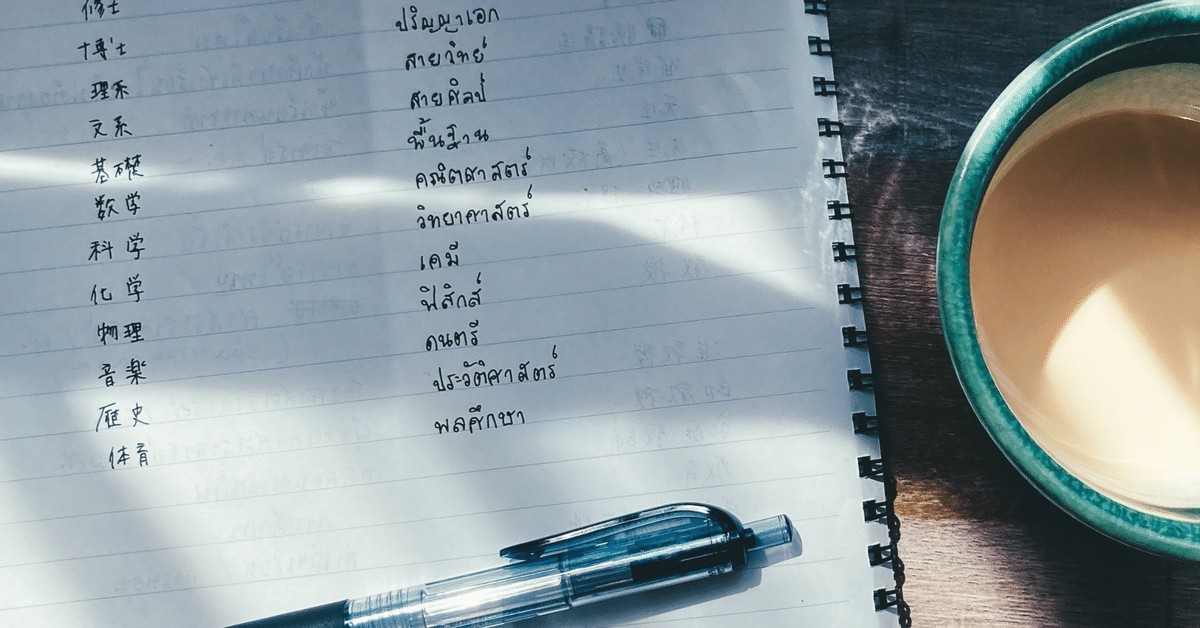 修士
博士 ปริญญาเอก
理系 สายวิทย์
文系 สายศิลป์
基礎 พื้นฐาน
数学 คณิตศาสตร์
科学 วิทยาศาสตร์
化学 เคมี
物理 ฟิสิกส์
音楽 ดนตรี
歴史 ประวัติศาสตร์
体育 พลศึกษา